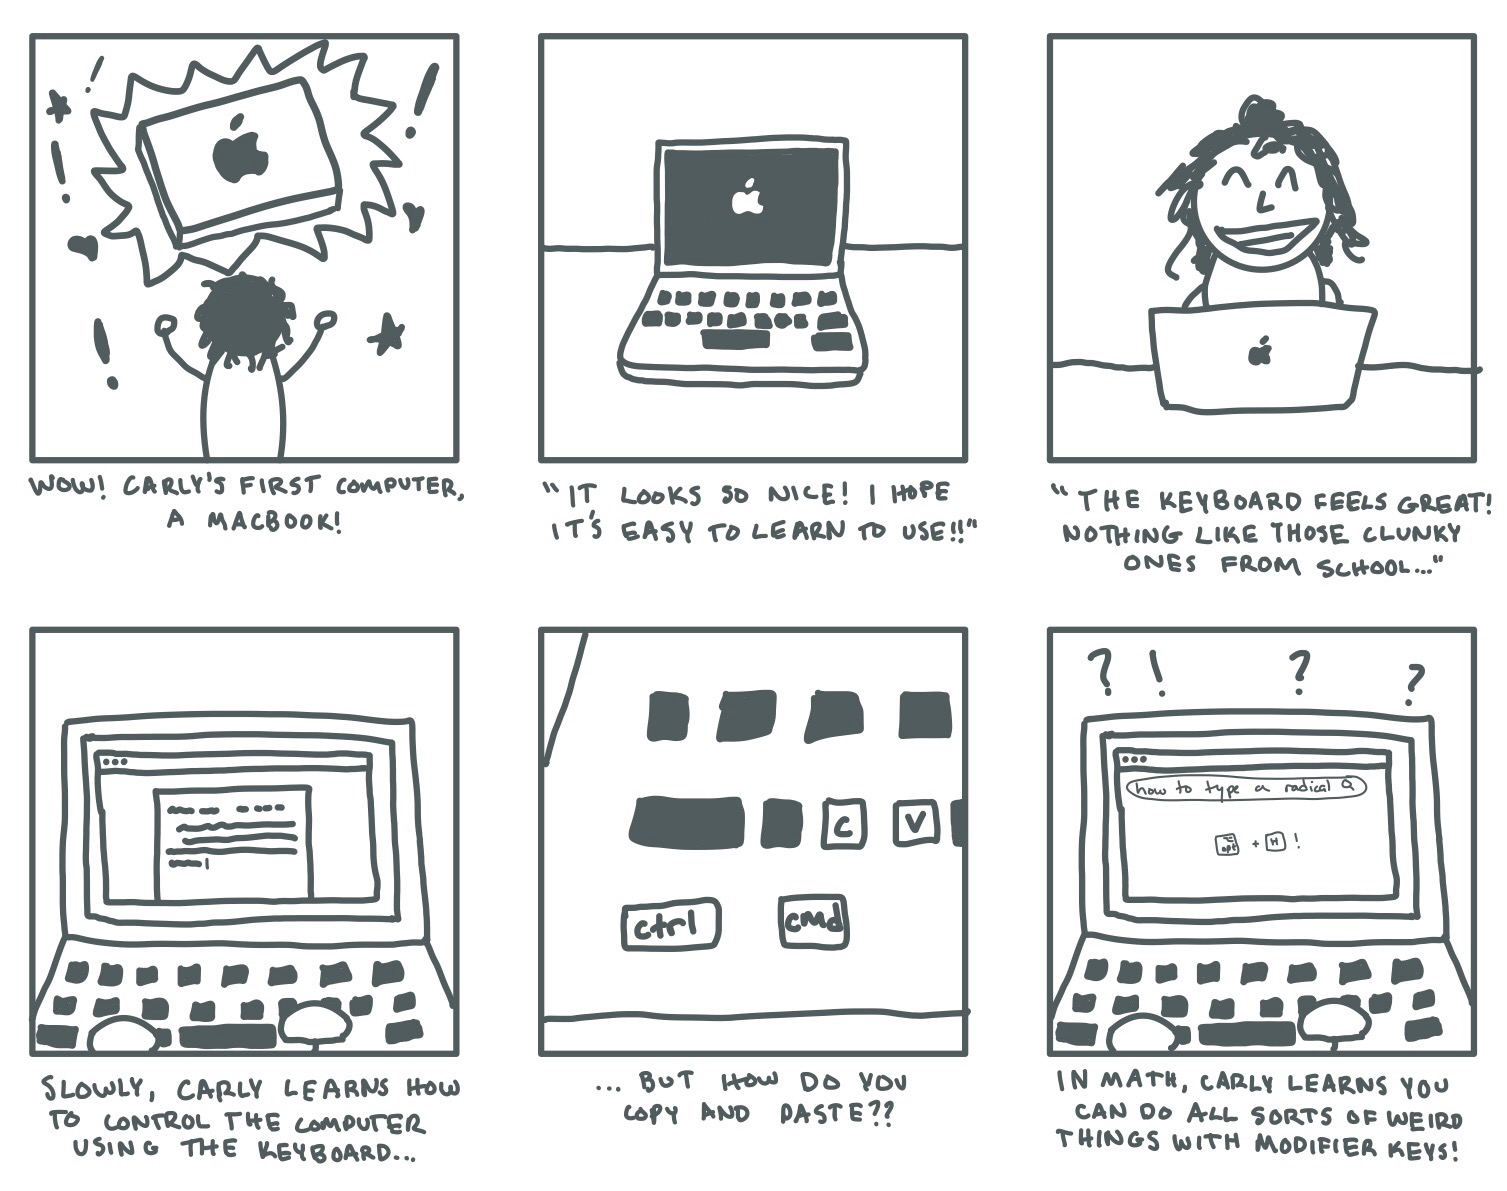 WOW! CARLY'S FIRST COMPUTER,
A MACBOOK!
"IT LOOKS SO NICE! I HOPE
IT'S EASY TO LEARN TO USE!!"
"THE KEYBOARD FEELS GREAT!
NOTHING LIKE THOSE CLUNKY
ONES FROM SCHOOL..."
SLOWLY, CARLY LEARNS HOW
TO CONTROL THE COMPUTER
USING THE KEYBOARD...
C V
ctrl cmd
... BUT HOW DO YOU
COPY AND PASTE??
? ! ? ?
how to type a radical
⌥
opt + H !
IN MATH, CARLY LEARNS YOU
CAN DO ALL SORTS OF WEIRD
THINGS WITH MODIFIER KEYS!